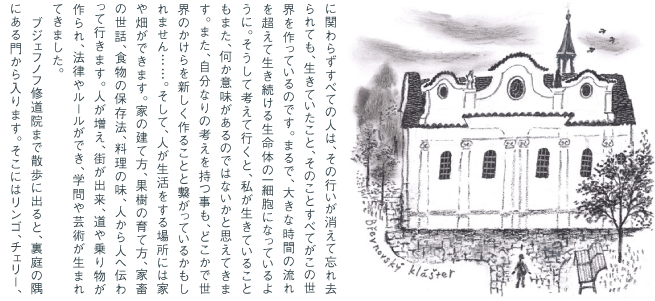 に関わらずすべての人は、その行いが消えて忘れ去
られても、生きていたこと、そのことすべてがこの世
界を作っているのです。まるで、大きな時間の流れ
を超えて生き続ける生命体の一細胞になっているよ
うに。そうして考えて行くと、私が生きていること
もまた、何か意味があるのではないかと思えてきま
す。また、自分なりの考えを持つ事も、どこかで世
界のかけらを新しく作ることと繋がっているかもし
れません……。そして、人が生活をする場所には家
や畑ができます。家の建て方、果樹の育て方、家畜
の世話、食物の保存法、料理の味、人から人へ伝わ
って行きます。人が増え、街が出来、道や乗り物が
作られ、法律やルールができ、学問や芸術が生まれ
てきました。
ブジェフノフ修道院まで散歩に出ると、裏庭の隅
にある門から入ります。そこにはリンゴ、チェリー、
Břevnovský klášter